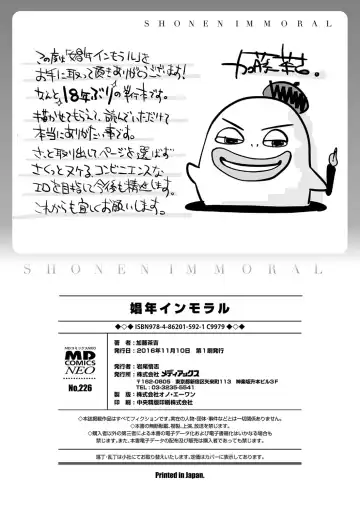 SHONEN IMMORAL
この度は「娼年インモラル」を
お手に取って頂きありがとうございます!
なんと18年ぶりの単行本です。
描かせてもらって、読んでいただけて
本当にありがたい事です。
さっと取り出してページを選ばず
さくっとヌケる、コンビニエンスな
エロを目指して今後も精進します。
これからも宜しくお願いします。
加藤茶吉。
SHONEN IMMORAL
娼年インモラル
◆◇◆ ISBN978-4-86201-592-1 C9979 ◆◇◆
MDコミックスNEO
MD
COMICS
NEO
No.226
著者:加藤茶吉
発行日:2016年11月10日 第1刷発行
発行人:岩尾悟志
発行所:株式会社メディアックス
〒162-0805 東京都新宿区矢来町113 神楽坂升本ビル3F
TEL 03-3235-5541
製版:株式会社オノ・エーワン
印刷:中央精版印刷株式会社
◇本誌掲載作品はすべてフィクションです。実在の人物・団体・事件などとは一切関係ありません。
◇本書の無断転載、複製、上演、放送を禁じます。
◇購入者以外の第三者による本書の電子データ化および電子書籍化はいかなる場合も
禁じます。また、本書電子データの配布及び販売は購入者であっても禁じます。
落丁・乱丁は小社にてお取り替えいたします。定価はカバーに表示してあります。
Printed in Japan.